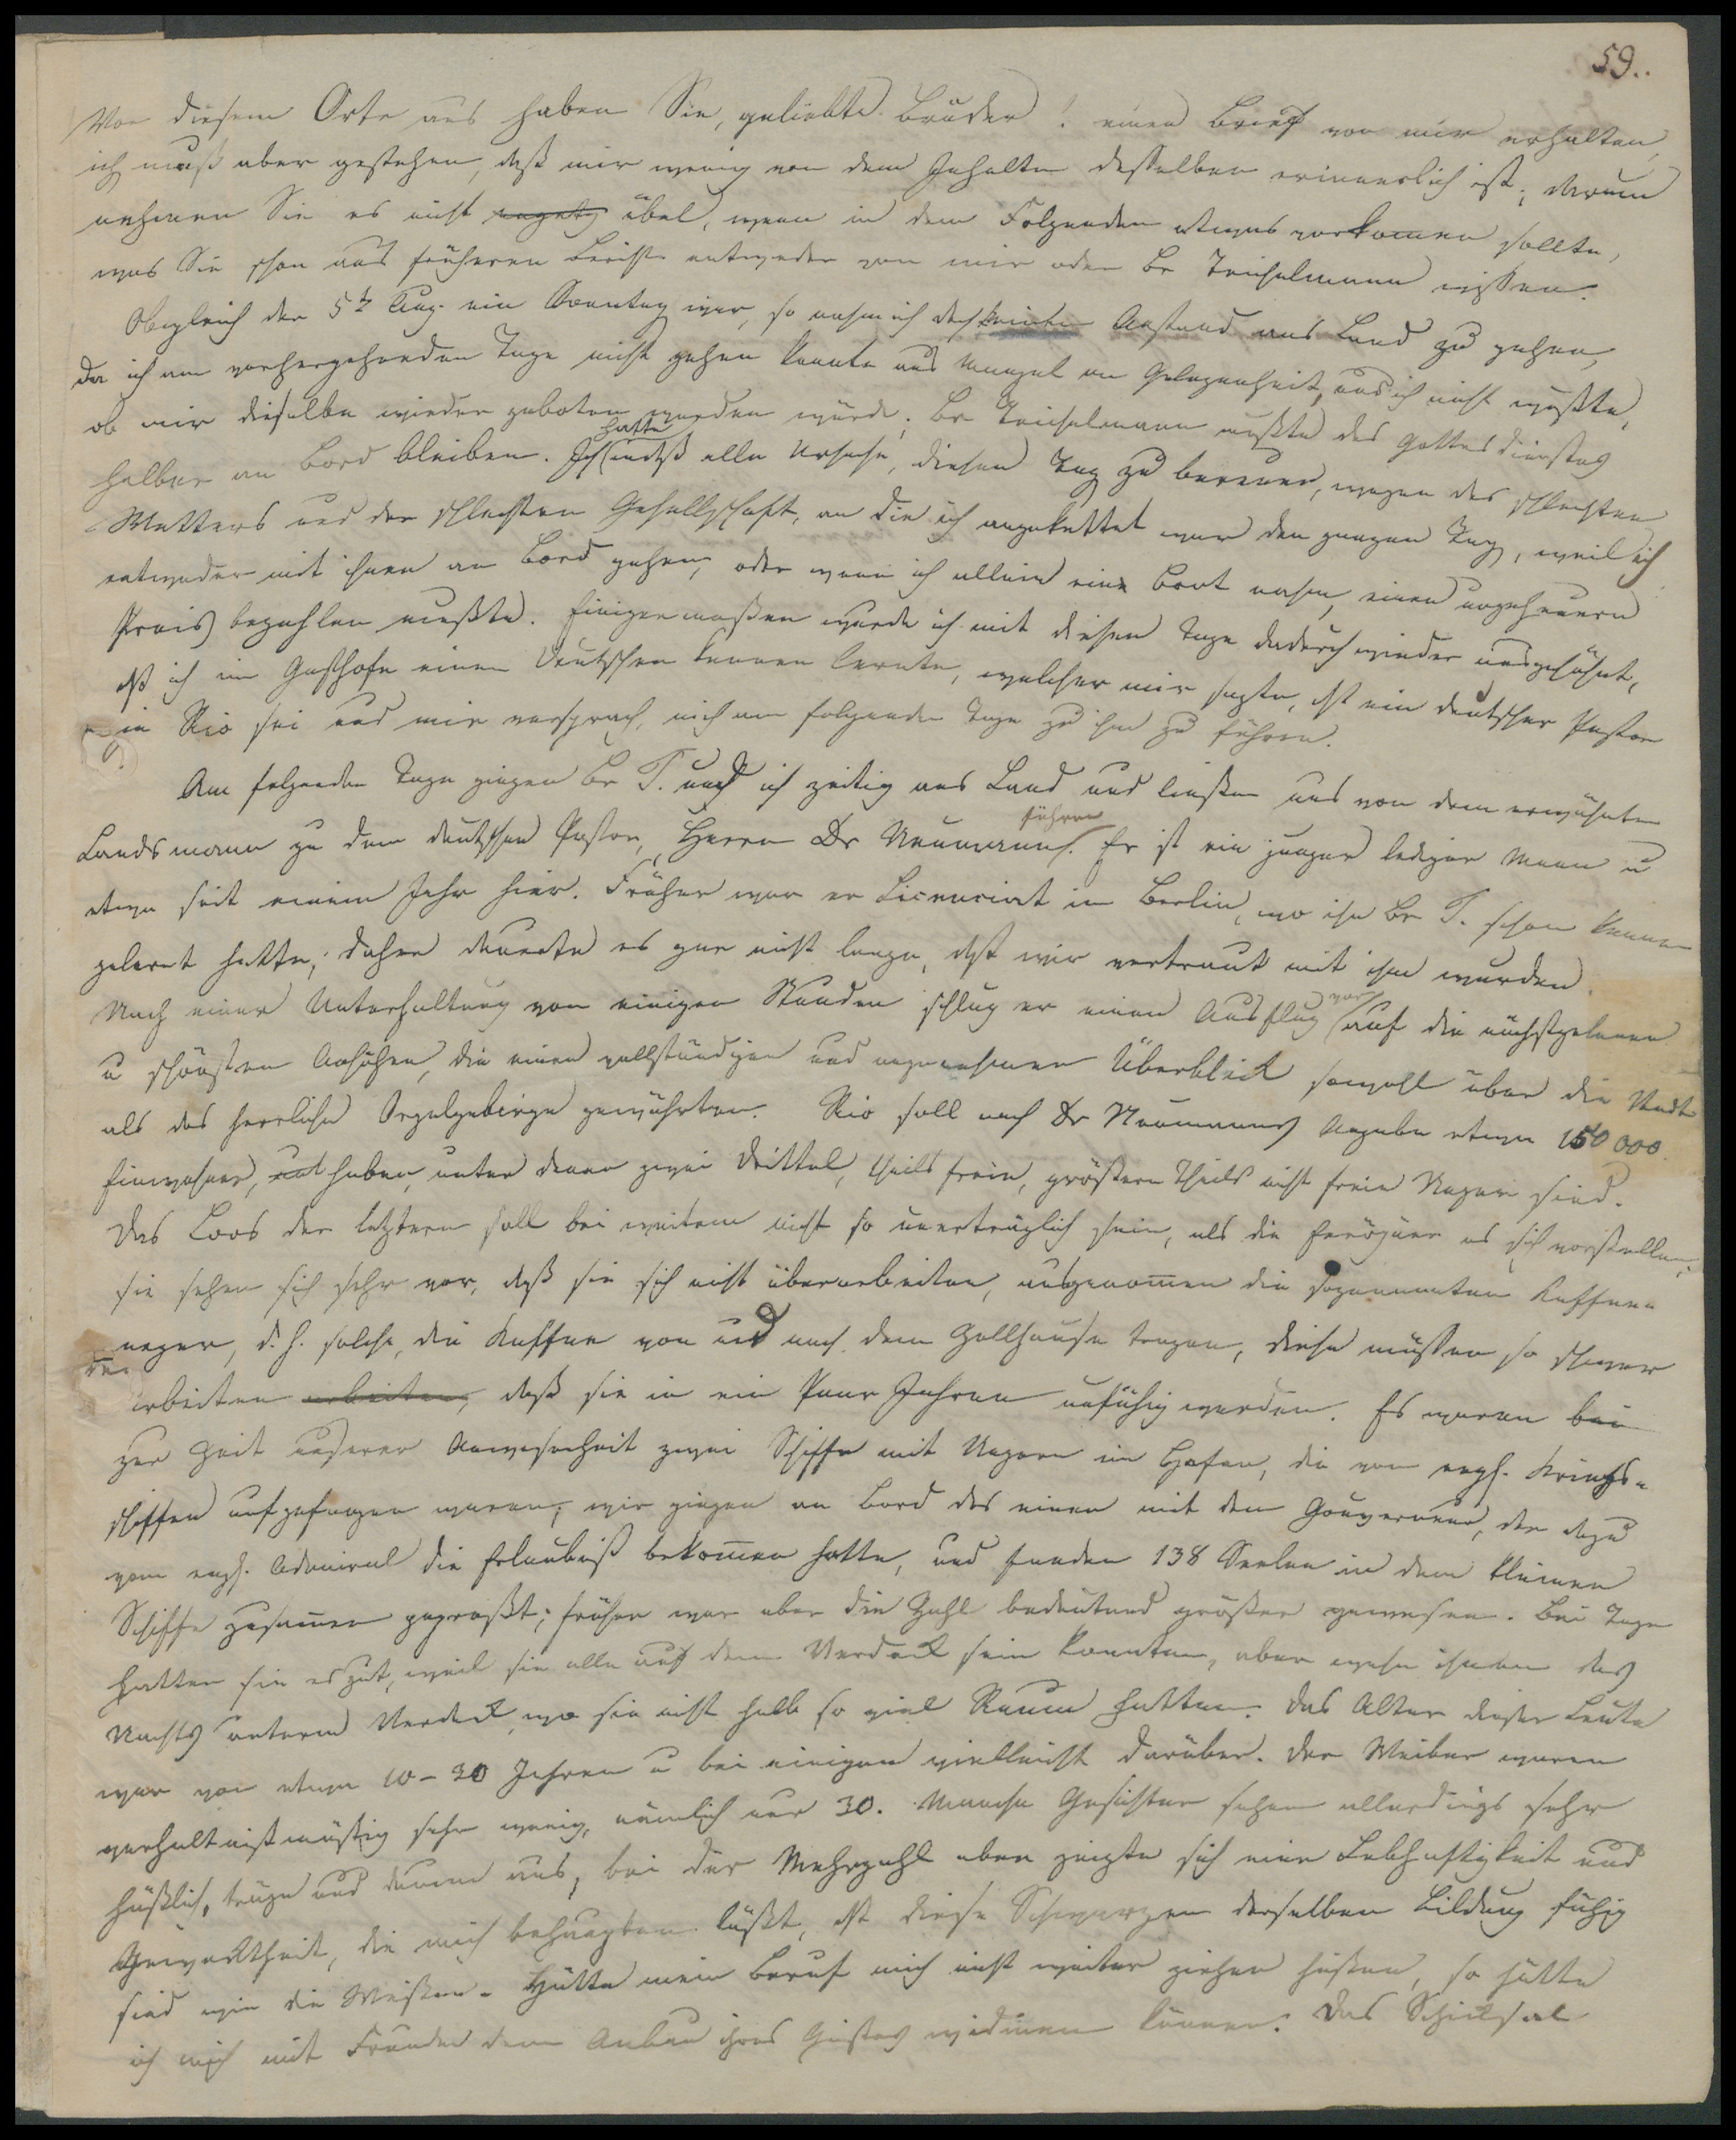 59.
Von diesem Orte aus haben Sie, geliebte Brüder! einen Brief von mir erhalten,
ich muß aber gestehen, daß mir wenig von dem Inhalte desselben erinnerlich ist; darum
nehmen Sie es nicht übel, wenn in dem Folgenden etwas vorkomen sollte,
was Sie schon aus früheren Berichte entweder von mir oder Br Teichelmann wissen.
Obgleich der 5te Aug. ein Sonntag war, so nahm ich doch keinen Anstand ans Land zu gehen,
da ich am vorhergehenden Tage nicht gehen konnte aus Mangel an Gelegenheit, und ich nicht wußte,
ob mir dieselbe wieder geboten werden würde. Br Teichelmann mußte des Gottesdienstes
halber an Bord bleiben. Ich hatte indeß alle Ursache, diesen Tag zu bereuen, wegen des schlechten
Wetters und der schlechten Gesellschaft, an die ich angekettet war den ganzen Tag, weil ich
entweder mit ihnen an Bord gehen, oder wenn ich allein ein Boot nahm, einen ungeheuern
Preis bezahlen mußte. Einigermaßen wurde ich mit diesem Tage dadurch wieder ausgesöhnt,
daß ich im Gasthofe einen Deutschen kennen lernte, welcher mir sagte, daß ein deutscher Pastor
in Rio sei und mir versprach, mich am folgenden Tage zu ihm zu führen.
Am folgenden Tage gingen Br T. und ich zeitig ans Land und ließen uns von dem erwähnten
Landsmann zu dem deutschen Pastor, Herrn Dr Neumann führen. Er ist ein junger lediger Mann u
etwa seit einem Jahr hier. Früher war er Licenciat in Berlin, wo ihn Br T. schon kennen
gelernt hatte; daher dauerte es gar nicht lange, daß wir vertraut mit ihm wurden.
Nach einer Unterhaltung von einigen Stunden schlug er einen Ausflug vor auf die nächstgelenen
u schönsten Anhöhen, die einen vollständigen und angenehmen Überblick sowohl über die Stadt
als das herrliche Orgelgebirge gewährten. Rio soll nach Dr Neumanns Angabe etwa 150 000
Einwohner, haben, unter denen zwei Drittel, theils freie, größern Theils nicht freie Neger sind.
Das Loos der letztern soll bei weitem nicht so unerträglich sein, als die Eeröpäer es sich vorstellen;
sie sehen sich sehr vor, daß sie sich nicht überarbeiten, ausgenomen die sogenannten Kaffee-
neger, d. h. solche, die Kaffee von und nach dem Zollhause tragen, diese müssen so schwer
arbeiten arbeiten, daß sie in ein Paar Jahren unfähig werden. Es waren bei
zur Zeit unserer Anwesenheit zwei Schiffe mit Negern im Hafen, die von engl. Kriegs-
schiffen aufgefangen waren; wir gingen an Bord des einen mit dem Gouverneur, der dazu
vom engl. Admiral die Erlaubniß bekomen hatte, und fanden 138 Seelen in dem kleinen
Schiffe zusamen gepreßt; früher war aber die Zahl bedeutend größer gewesen. Bei Tage
hatten sie es gut, weil sie alle auf dem Verdeck sein konnten, aber wehe ihnen des
Nachts unterm Verdeck, wo sie nicht halb so viel Raum hatten. Das Alter dieser Leute
war von etwa 10 – 30 Jahren u bei einigen vielleicht darüber. Der Weiber waren
verhältnißmäßig sehr wenig, nämlich nur 30. Manche Gesichter sehen allerdings sehr
häßlich, träge und dumm aus; bei der Mehrzahl aber zeigte sich eine Lebhaftigkeit und
Gewecktheit, die mich behaupten läßt, daß diese Schwarzen derselben Bildung fähig
sind wie die Weißen. Hätte mein Beruf mich nicht weiter ziehen heißen, so hätte
ich mich mit Freuden dem Anbau ihres Geistes widmen können. Das Schicksal